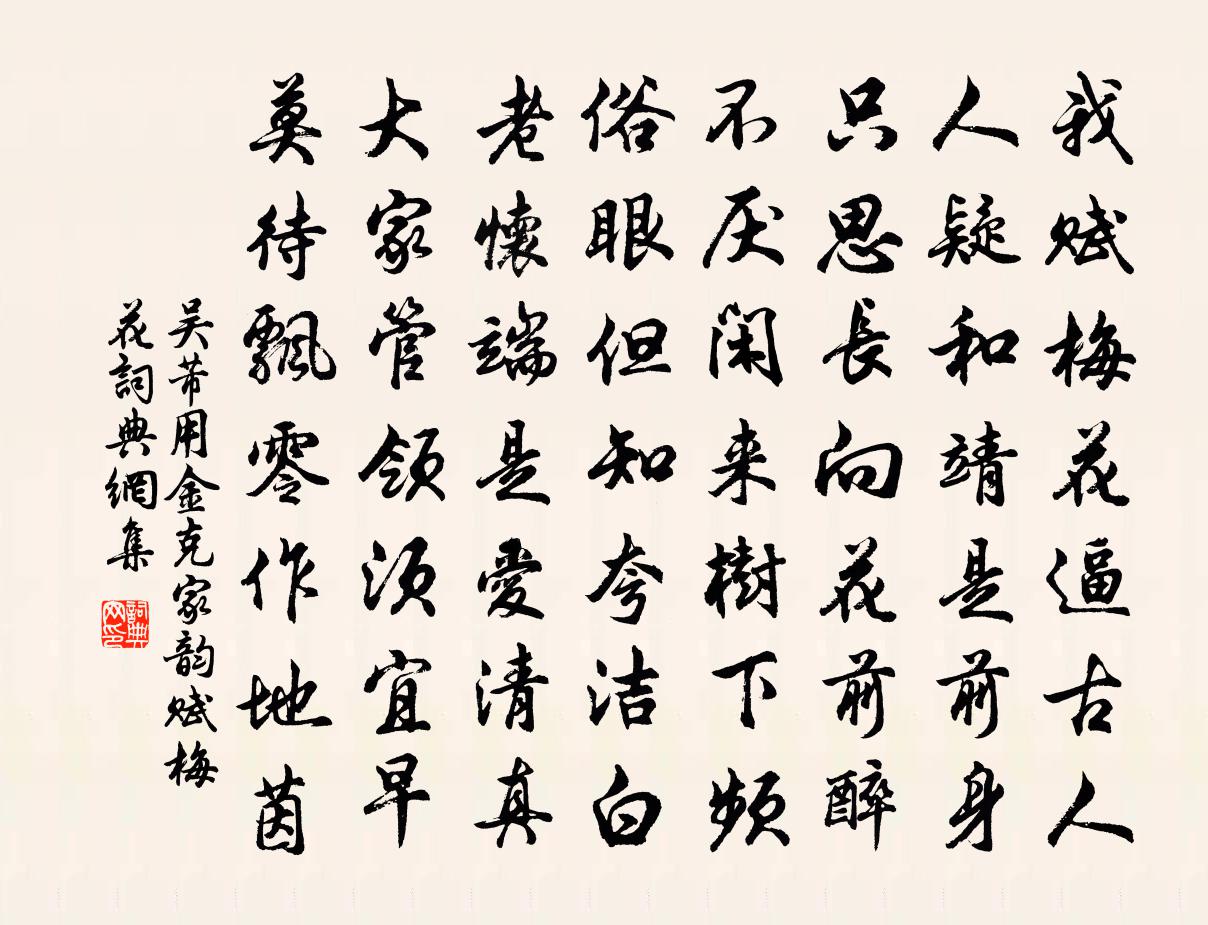 我赋梅花逼古人
人疑和靖是前身
只思長向花前醉
不厌闲来樹下频
俗眼但知夸洁白
老懷端是愛清真
大家管領须宜早
莫待飄零作地茵
吴芾用金克家韵赋梅
花詞典網集
詞典网印